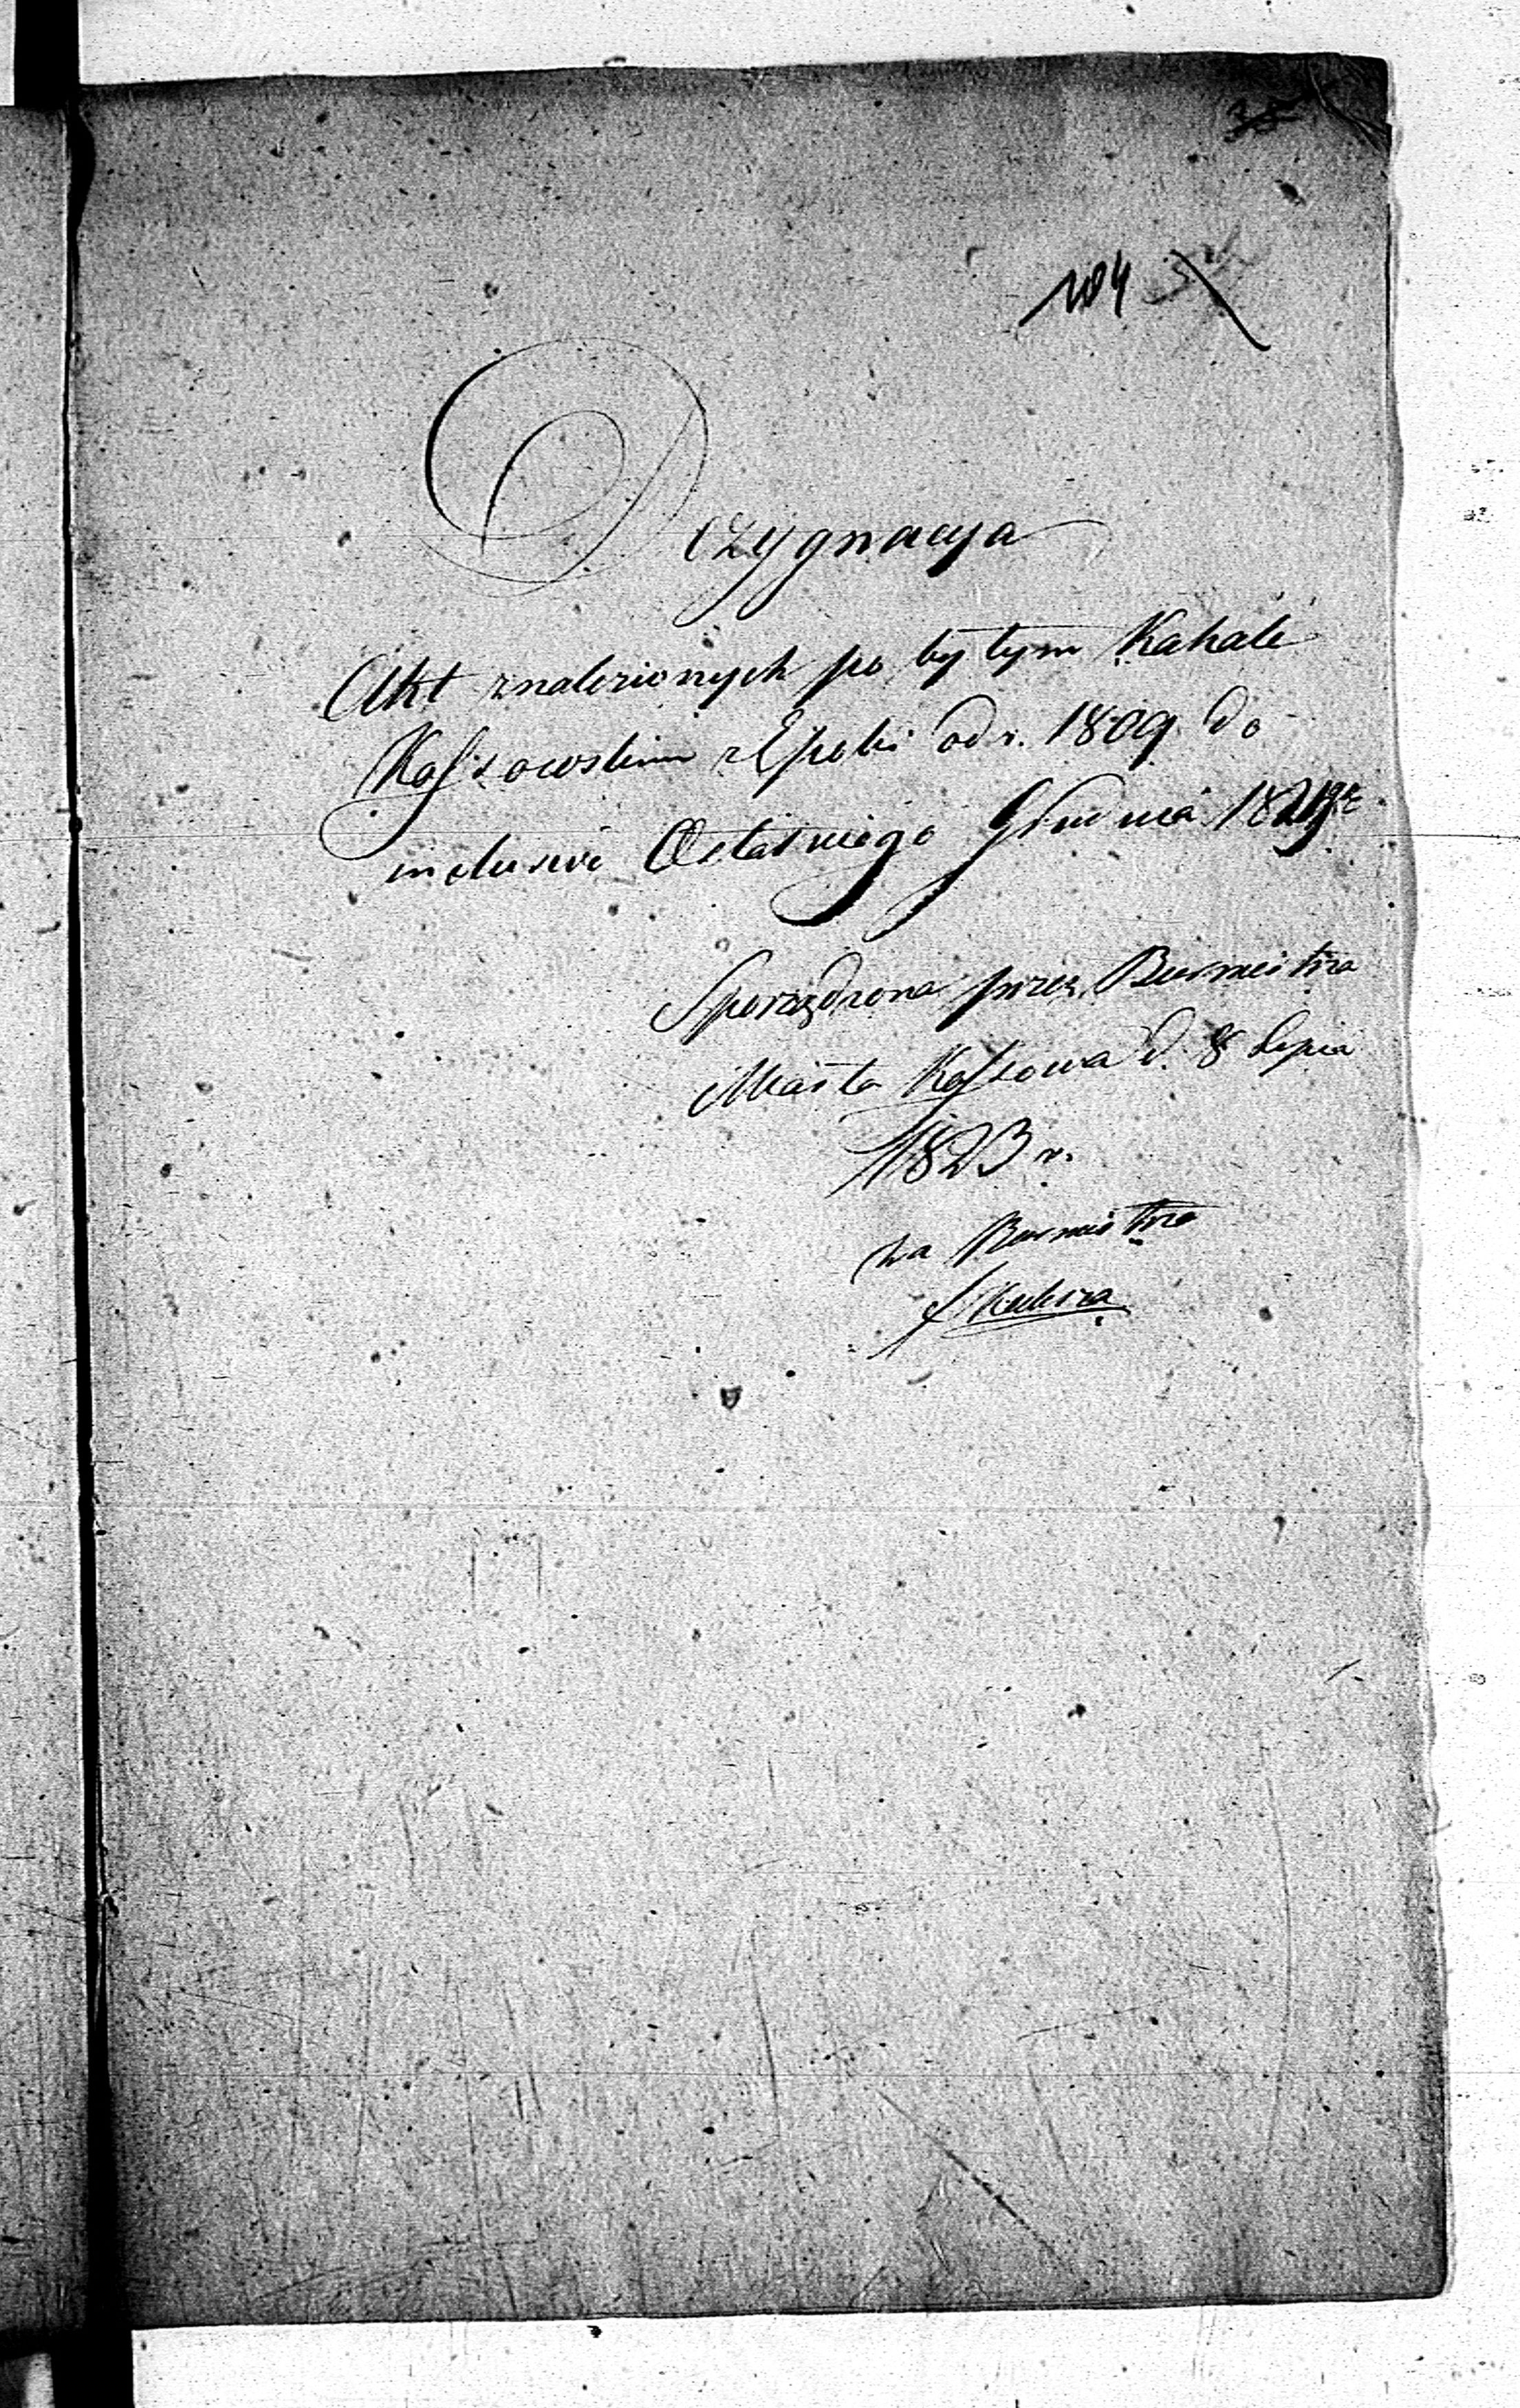 104
Dezygnacya
Akt znalezionych po byłym Kahale
Kossowskim z Epoki od r. 1809 do
inclusive Ostatniego Grudnia
Sporządzona przez Burmistrza
Miasta Kossowa d. 8 Lipca
1823 r.
za Burmistrza